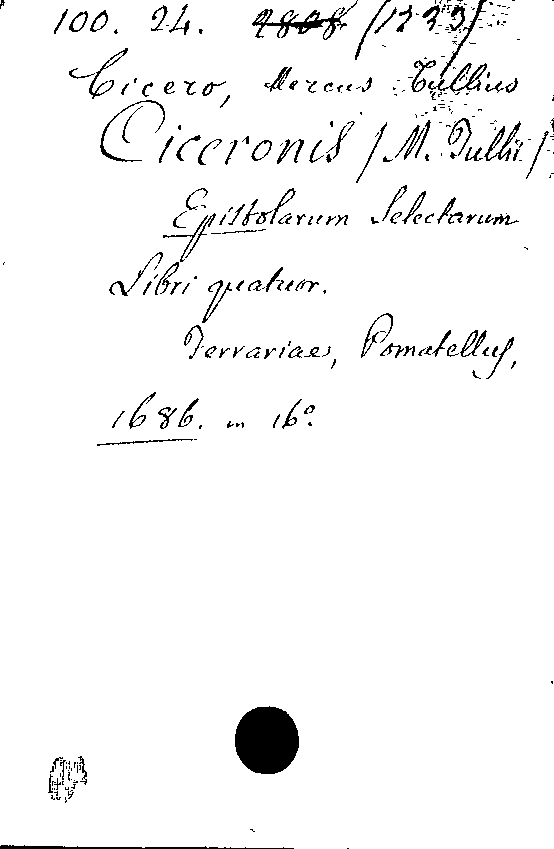 100. 24. 2808 (1233)
Cicero, Marcus Tullius
Ciceronis (M. Tullii)
Epistolarum Selectarum
Libri quatuor.
Ferrariae, Pomatellus,
1686. in 16°.